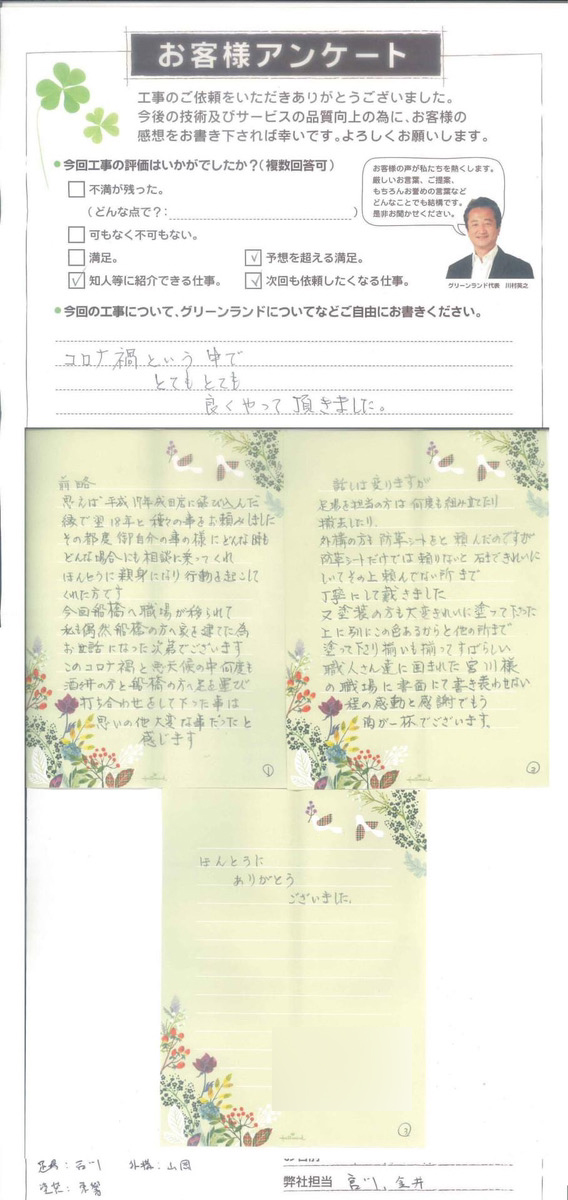 お客様アンケート
工事のご依頼をいただきありがとうございました。
今後の技術及びサービスの品質向上の為に、お客様の
感想をお書き下されば幸いです。よろしくお願いします。
•今回工事の評価はいかがでしたか?(複数回答可)
不満が残った。
(どんな点で?: )
可もなく不可もない。
満足。
予想を超える満足。
知人等に紹介できる仕事。
次回も依頼したくなる仕事。
お客様の声が私たちを熱くします。
厳しいお言葉、ご提案、
もちろんお誉めの言葉など
どんなことでも結構です。
是非お聞かせください。
グリーンランド代表 川村
•今回の工事について、グリーンランドについてなどご自由にお書きください。
コロナ禍という中で
とてもとても
良くやって頂きました。
前略
思えば平成17年成田店に飛び込んだ
後で里18年と種々の事をお頼みしました
その都度御自分の事の様にどんな時も
どんな場合にも相談に乗ってくれ
ほんとうに親身になり行動を起こして
くれた方です
今回船橋へ職場が移られて
私も偶然船橋の方へ家を建てた為
お世話になった次第でございます
このコロナ禍と悪天候の中何度も
酒井の方と船橋の方へ足を運び
打ち合わせをして下った事は
思いの他大変な事だったと
感じます
①
Hallmark
話しは変りますが
足場を担当の方は何度も組み立てたり
撤去したり、
外構の方も防草シートをと頼んだのですが
防草シートだけでは頼りないと石まできれいに
しいてその上頼んでない所まで
丁寧にして戴きました
又塗装の方も大変きれいに塗って下った
上に別にこの色あるからと他の所まで
塗って下さり揃いも揃ってすばらしい
職人さん達に囲まれた宮川様
の職場に書面にて書き表わせない
程の感動と感謝でもう
胸が一杯でございます。
②
Hallmark
ほんとうに
ありがとう
ございました。
③
Hallmark
足場:石川 外構:山岡
塗装:
弊社担当 宮川、金井